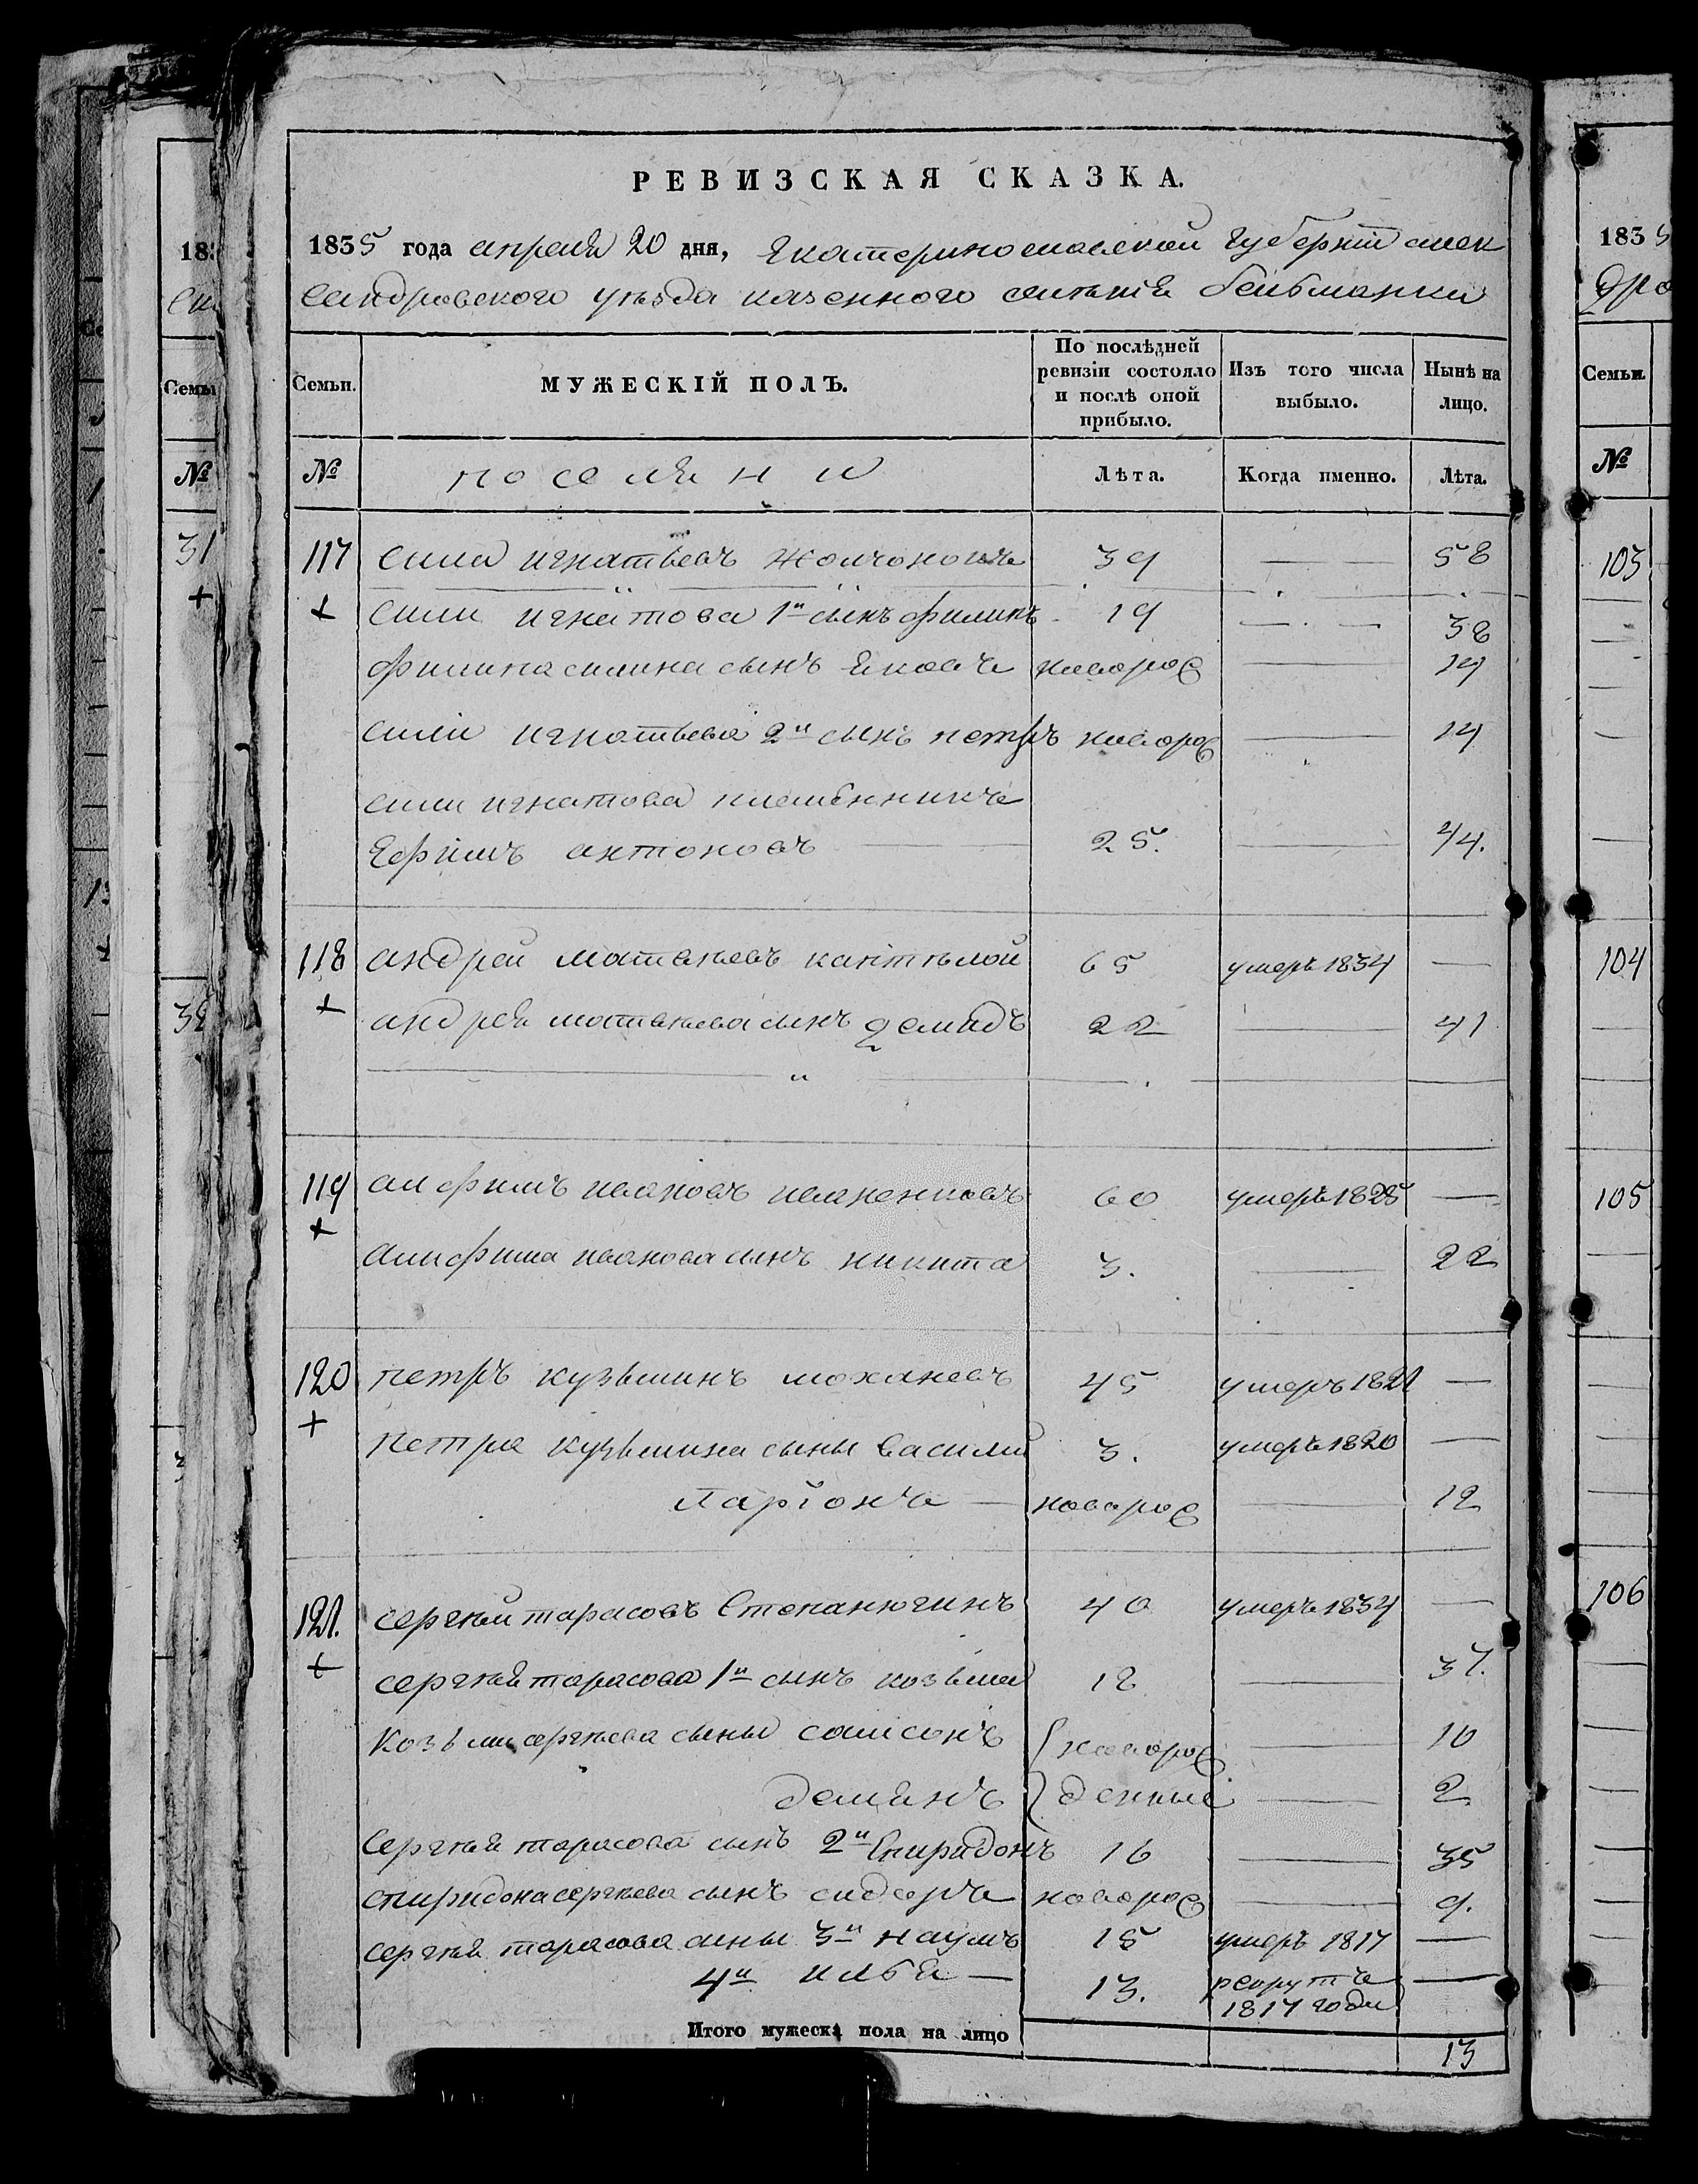 РЕВИЗСКАЯ СКАЗКА.
1835 года апреля 20 дня, Екатеринославской губернiи алек
сандровского уѣзда казенного селенiя
Семьи. МУЖЕСКIЙ ПОЛЪ. По послѣдней ревизiи состояло и послѣ оной прибыло. Изъ того числа выбыло. Нынѣ на лицо.
№ поселяни Лѣта. Когда именно. Лѣта.
117 сила игнатьевъ 39 — 58
+ сили игнатова 1й сынъ филипъ 19 — 38
филипа силина сынъ яковъ новорож — 14
сили игнатьева 2й сынъ петръ новорож — 14
сили игнатова племенникъ
Ефимъ антоновъ 25. — 44.
118 андрей 65 умеръ 1834 —
+ андрея сынъ демидъ 22 — 41
119 анфимъ ивановъ иваненковъ 60 умеръ 1825 —
+ анфима иванова сынъ никита 3. — 22
120 петръ кузьминъ 45 умеръ 1821 —
+ петра кузьмина сыны василий 3. умеръ 1820 —
ларiонъ — новорож — 12
121. сергѣй тарасовъ Степанюгинъ 40 умеръ 1834 —
+ сергѣя тарасова 1й сынъ козьма 18 — 37.
Козьми сергѣева сыны самсонъ новорож — 10
демянъ денные — 2
Сергѣя тарасова сынъ 2й Спиридонъ 16 — 35
спиридона сергѣева сынъ сидоръ новорож — 9.
сергѣя тарасова сыны 3й наумъ 15 умеръ 1817 —
4й илья — 13. рекрутъ —
1817 годи
Итого мужеска пола на лицо 13
183
Семьи
№
31
+
1835
Семьи.
№
103
104
105
106